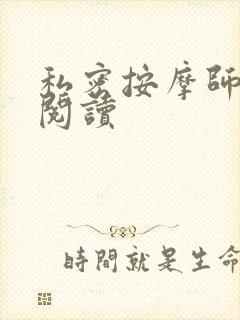 私密按摩師
閱讀
時間就是生命